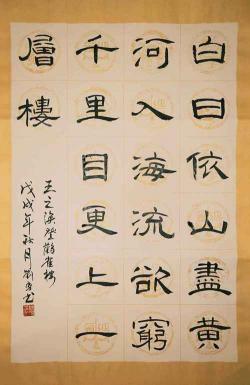 白日依山盡黃
河入海流欲窮
千里目更上一
層樓
王之渙登鸛雀樓
戊戌年秋月劉書